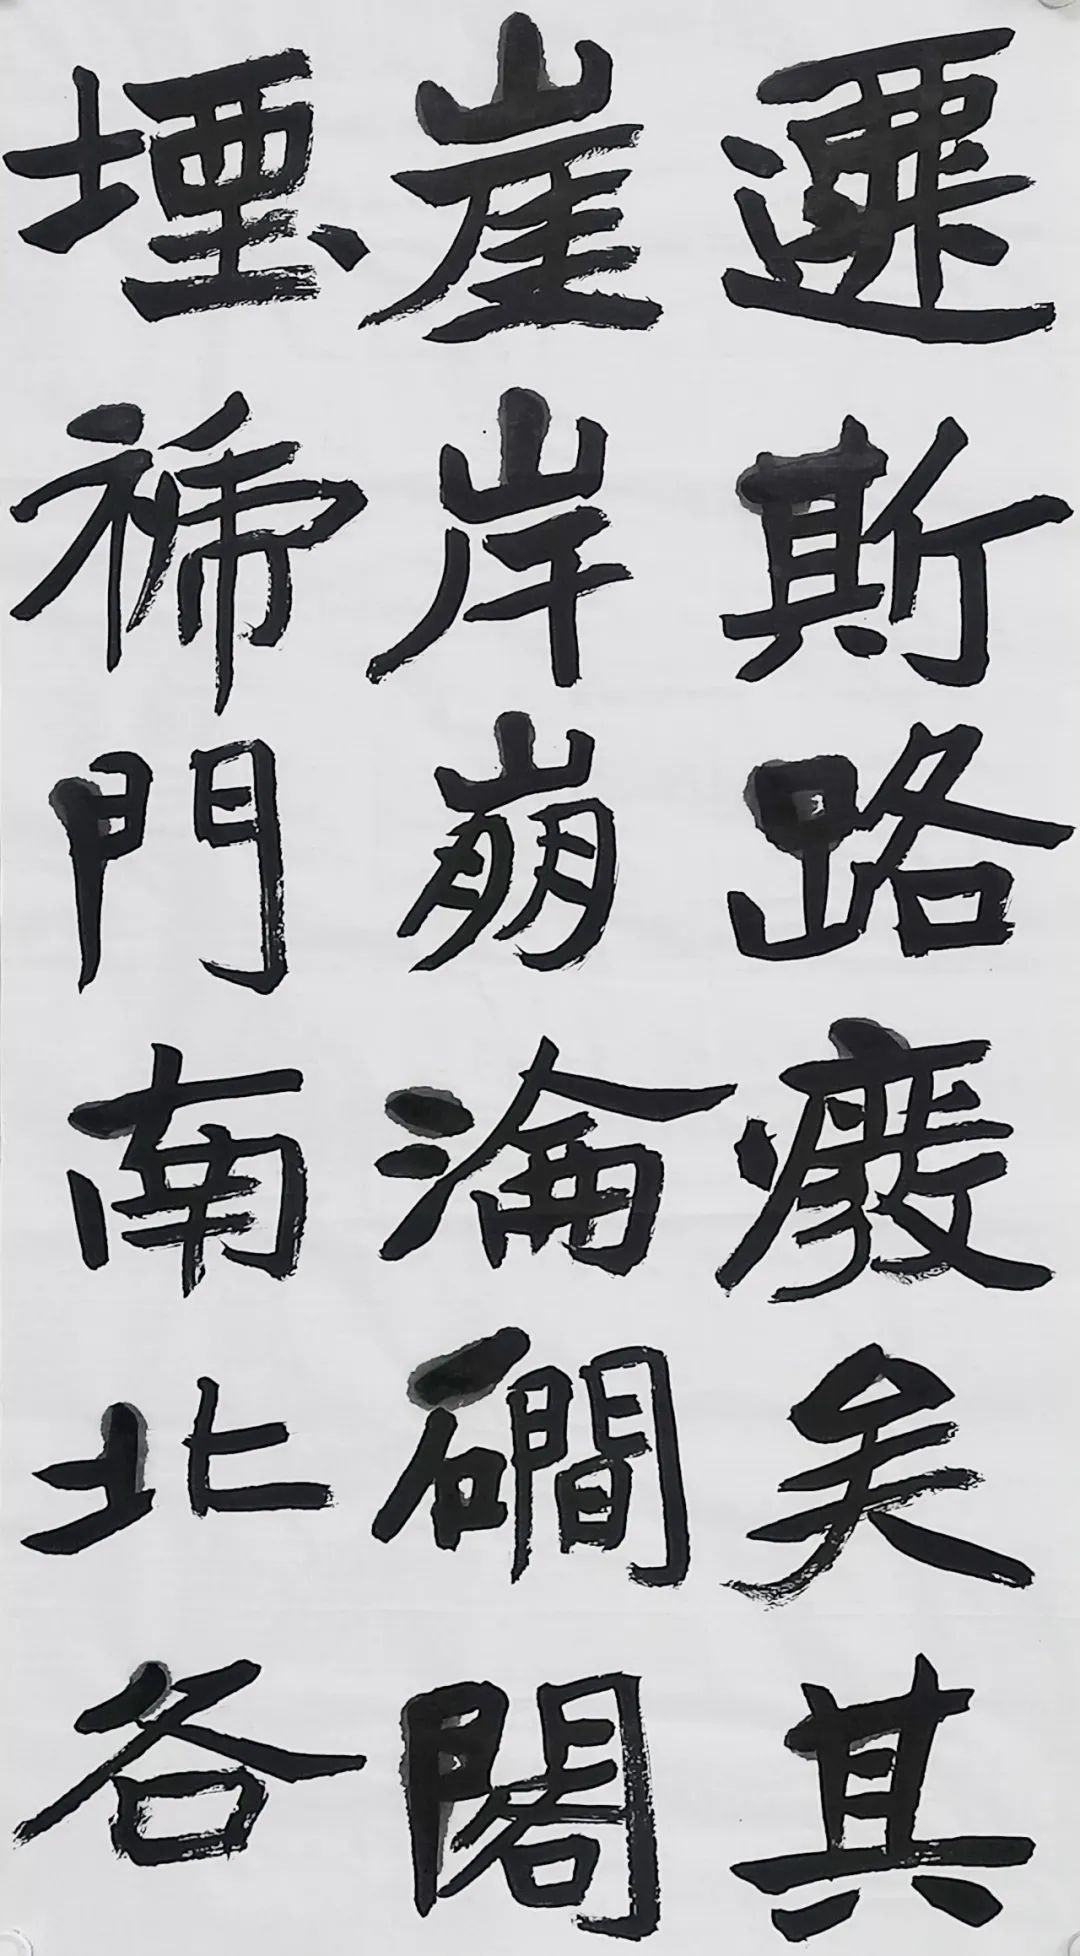 遷斯路癈矣其
崖岸崩淪磵閣
堙褫門南北各